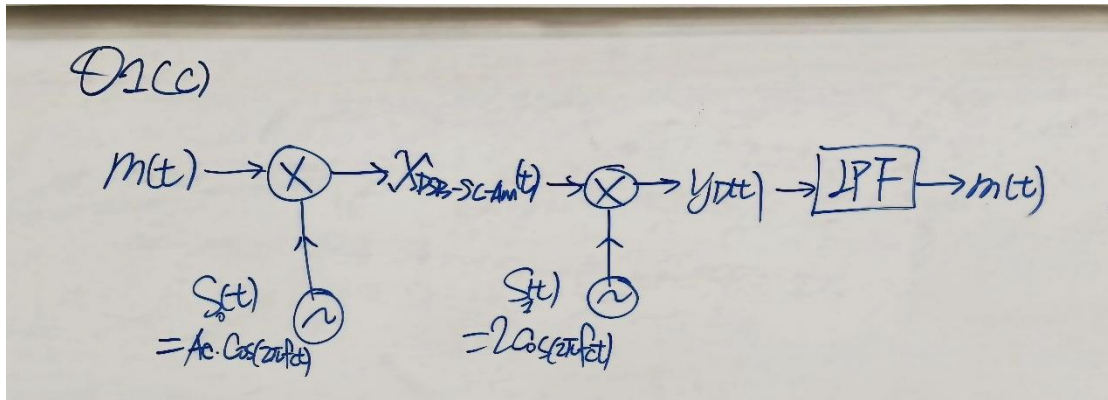 Q1(c)
m(t) → X → X_DSB-SC-AM(t) → X → y_D(t) → LPF → m(t)
S_0(t) ~ S_1(t) ~
= Ac·Cos(2πfct) = 2Cos(2πfct)